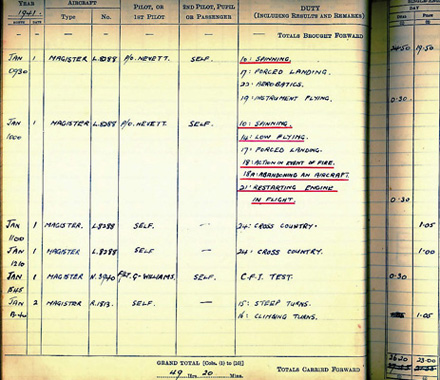 YEAR AIRCRAFT PILOT, OR 2ND PILOT, PUPIL DUTY
1941. Type No. 1ST PILOT OR PASSENGER (INCLUDING RESULTS AND REMARKS)
MONTH DATE DUAL PILOT
— — — — — — TOTALS BROUGHT FORWARD 19·50
JAN 1 MAGISTER L.8288 P/O. NEVETT. SELF. 10: SPINNING,
0930 17: FORCED LANDING.
22: AEROBATICS.
19: INSTRUMENT FLYING. 0·30
JAN 1 MAGISTER L.8288 P/O. NEVETT. SELF. 10: SPINNING,
1000 14: LOW FLYING.
17: FORCED LANDING.
18: ACTION IN EVENT OF FIRE.
18A: ABANDONING AN AIRCRAFT.
21: RESTARTING ENGINE
IN FLIGHT 0·30
JAN 1 MAGISTER. L.8288 SELF. — 24: CROSS COUNTRY. 1·05
1100
JAN 1 MAGISTER L.8288 SELF. — 24: CROSS COUNTRY. 1·00
1210
JAN 1 MAGISTER N.3940 G-WILLIAMS. SELF. C.F.I. TEST. 0·30
1545
JAN 2 MAGISTER R.1813. SELF. — 15: STEEP TURNS.
16: CLIMBING TURNS. 1·05
GRAND TOTAL [Cols. (1) to (10)]
49 Hrs. 20 Mins. TOTALS CARRIED FORWARD 26·20 23·00